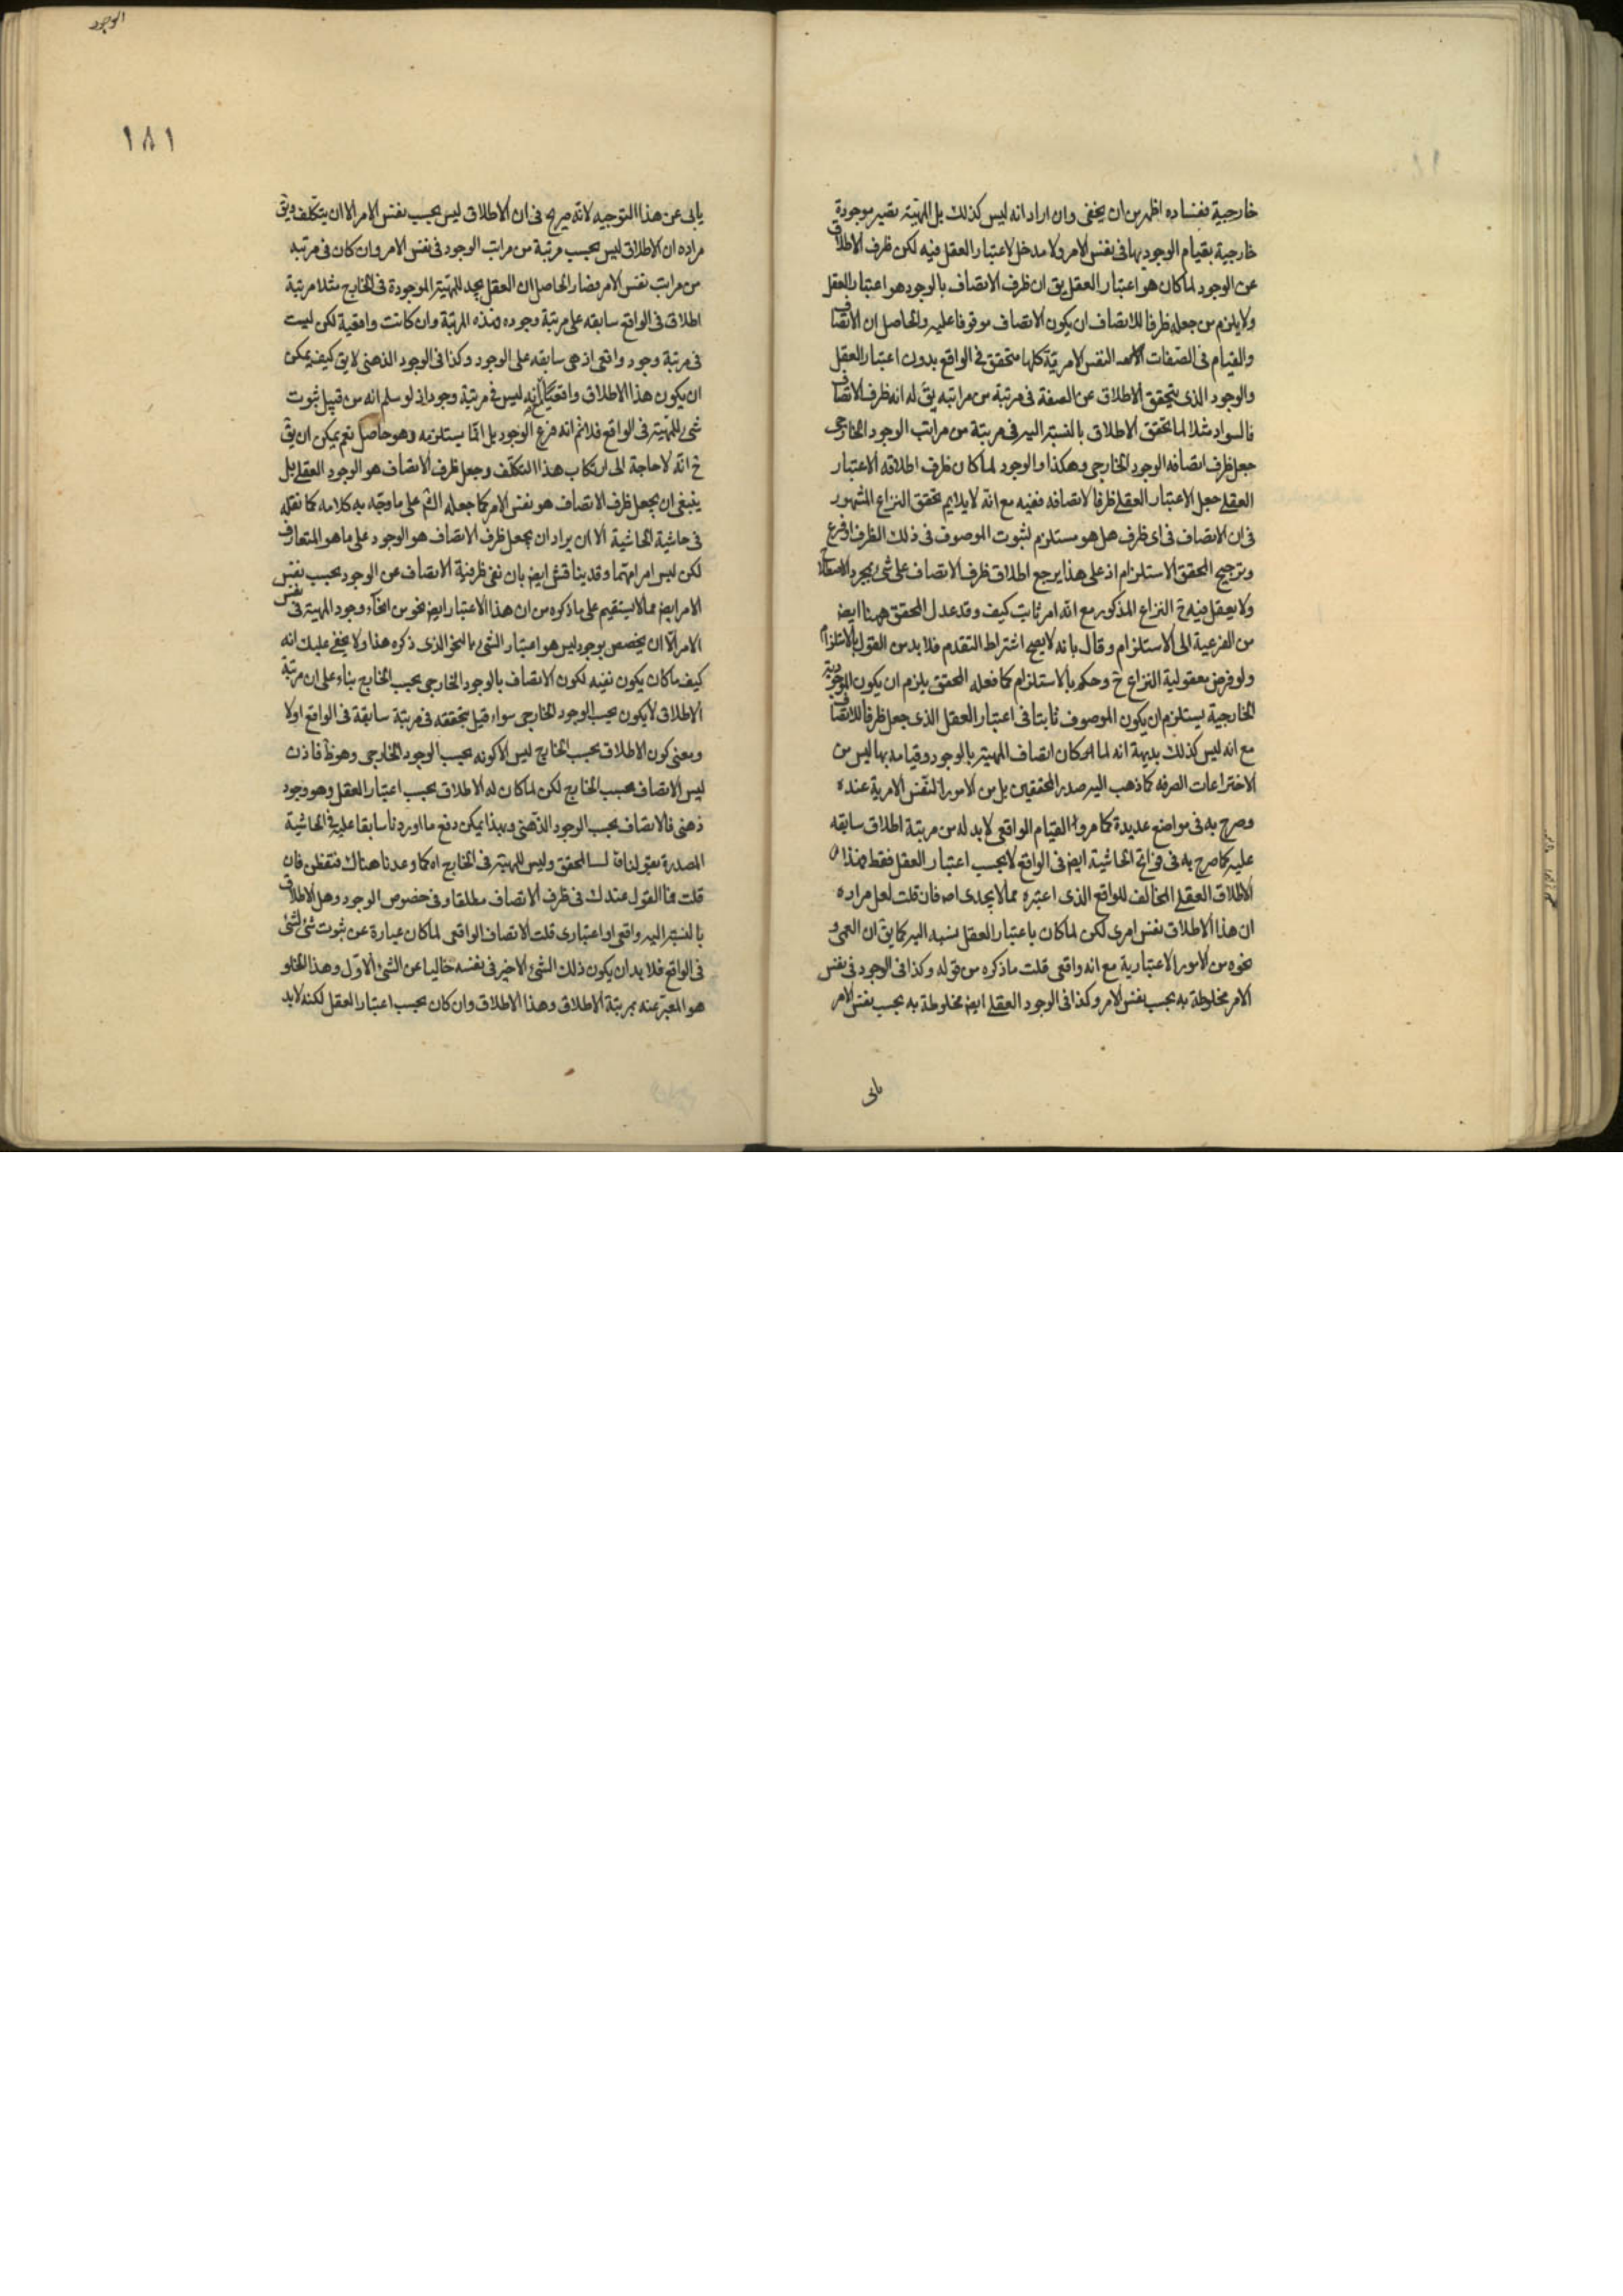 خارجية ففساده اظهر من ان يخفى وان اراد انه ليس كذلك بل المهية تصير موجودة
خارجية بقيام الوجود بها فى نفس الامر ولا مدخل لاعتبار العقل فيه لكن ظرف الاطلاق
عن الوجود لما كان هو اعتبار العقل يق ان ظرف الاتصاف بالوجود هو اعتبار العقل
ولا يلزم من جعله ظرفا للاتصاف ان يكون الاتصاف موقوفا عليه والحاصل ان الاتصاف
والقيام فى الصفات النفس الامرية كلها متحقق فى الواقع بدون اعتبار العقل
والوجود الذى يتحقق الاطلاق عن الصفة فى مرتبة من مراتبه يق له انه ظرف الاتصاف
فالسواد مثلا لما تحقق الاطلاق بالنسبة اليه فى مرتبة من مراتب الوجود الخارجى
جعل ظرف اتصافه الوجود الخارجى وهكذا والوجود لما كان ظرف اطلاقه الاعتبار
العقلى جعل الاعتبار العقلى ظرفا لاتصافه ففيه مع انه لا يلايم تحقق النزاع المشهور
فى ان الاتصاف فى اى ظرف هل هو مستلزم لثبوت الموصوف فى ذلك الظرف او فرع
وترجيح المحقق الاستلزام اذ على هذا يرجع اطلاق ظرف الاتصاف على شى بمجرد
ولا يعقل فيه ح النزاع المذكور مع انه امر ثابت كيف وقد عدل المحقق ههنا ايض
من الفرعية الى الاستلزام وقال بانه لا يصح اشتراط التقدم فلا بد من القول بالاستلزام
ولو فرض معقولية النزاع ح وحكم بالاستلزام كما فعله المحقق يلزم ان يكون الموجودية
الخارجية يستلزم ان يكون الموصوف ثابتا فى اعتبار العقل الذى جعل ظرفا للاتصاف
مع انه ليس كذلك بديهة انه لما كان اتصاف المهية بالوجود وقيامه بها ليس من
الاختراعات الصرفه كما ذهب اليه صدر المحققين بل من الامور النفس الامرية عنده
وصرح به فى مواضع عديدة كما مر والقيام الواقعى لا بد له من مرتبة اطلاق سابقه
عليه كما صرح به فى فواتح الحاشية ايض فى الواقع لا بحسب اعتبار العقل فقط فهذا
الاطلاق العقلى المخالف للواقع الذى اعتبره مما لا يجدى اصه فان قلت لعل مراده
ان هذا الاطلاق نفس امرى لكن لما كان باعتبار العقل نسبه اليه كما يق ان العمى و
نحوه من الامور الاعتبارية مع انه واقعى قلت ما ذكره من قوله وكذا فى الوجود فى نفس
الامر مخلوطة به بحسب نفس الامر وكذا فى الوجود العقلى ايض مخلوطة به بحسب نفس الامر
يابى
الوجود
١٨١
يابى عن هذا التوجيه لانه صريح فى ان الاطلاق ليس بحسب نفس الامر الا ان يتكلف ويق
مراده ان الاطلاق ليس بحسب مرتبة من مراتب الوجود فى نفس الامر وان كان فى مرتبه
من مراتب نفس الامر فصار الحاصل ان العقل يجد للمهية الموجودة فى الخارج مثلا مرتبة
اطلاق فى الواقع سابقه على مرتبة وجوده فهذه المرتبة وان كانت واقعية لكن ليست
فى مرتبة وجود واقعى اذ هى سابقه على الوجود وكذا فى الوجود الذهنى لا يق كيف يمكن
ان يكون هذا الاطلاق واقعيا مع انه ليس فى مرتبة وجود اذ لو سلم انه من قبيل ثبوت
شى للمهية فى الواقع فلا نم انه فرع الوجود بل انما يستلزمه وهو حاصل نعم يمكن ان يق
ح انه لا حاجة الى ارتكاب هذا التكلف وجعل ظرف الاتصاف هو الوجود العقلى بل
ينبغى ان يجعل ظرف الاتصاف هو نفس الامر كما جعله الش على ما وجه به كلامه كما نقله
فى حاشية الحاشية الا ان يراد ان يجعل ظرف الاتصاف هو الوجود على ما هو المتعارف
لكن ليس امرا مهتما وقد يناقش ايض بان نفى ظرفية الاتصاف عن الوجود بحسب نفس
الامر ايض مما لا يستقيم على ما ذكره من ان هذا الاعتبار ايض نحو من انحاء وجود المهية فى نفس
الامر الا ان يخصص بوجود ليس هو اعتبار الشى بالنحو الذى ذكره هذا ولا يخفى عليك انه
كيف ما كان يكون نفيه لكون الاتصاف بالوجود الخارجى بحسب الخارج بناء على ان مرتبة
الاطلاق لا يكون بحسب الوجود الخارجى سواء قيل بتحققه فى مرتبة سابقة فى الواقع اولا
ومعنى كون الاطلاق بحسب الخارج ليس الا كونه بحسب الوجود الخارجى وهو ظ فاذن
ليس الاتصاف بحسب الخارج لكن لما كان له الاطلاق بحسب اعتبار العقل وهو وجود
ذهنى فالاتصاف بحسب الوجود الذهنى وبهذا يمكن دفع ما اوردنا سابقا عليه فى الحاشية
المصدرة بقولنا قال المحقق وليس للمهية فى الخارج اه كما وعدنا هناك فتفطن فان
قلت فما القول عندك فى ظرف الاتصاف مطلقا وفى خصوص الوجود وهل الاطلاق
بالنسبة اليه واقعى او اعتبارى قلت الاتصاف الواقعى لما كان عبارة عن ثبوت شئ لشئ
فى الواقع فلا بد ان يكون ذلك الشئ الاخير فى نفسه خاليا عن الشئ الاول وهذا الخلو
هو المعبر عنه بمرتبة الاطلاق وهذا الاطلاق وان كان بحسب اعتبار العقل لكنه لا بد